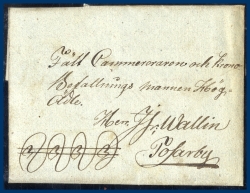 Fält Cammereraren och krono
Befallnings mannen Hög-
ädle
Herr Jr. Wallin
Tofarby